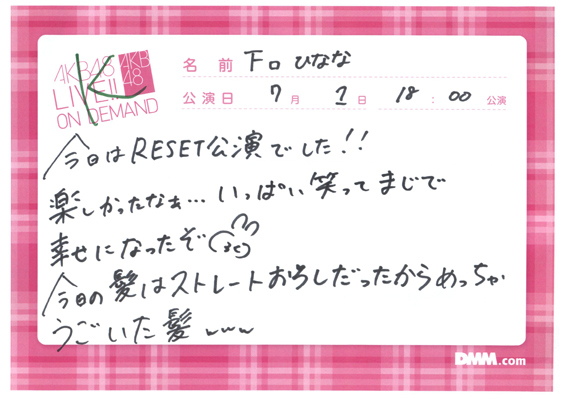 AKB48
LIVE!!
ON DEMAND
AKB
48
K
名前 下口ひなな
公演日 7月 7日 18:00 公演
今日はRESET公演でした!!
楽しかったなぁ…いっぱい笑ってまじで
幸せになったぞ
今日の髪はストレートおろしだったからめっちゃ
うごいた髪www
DMM.com